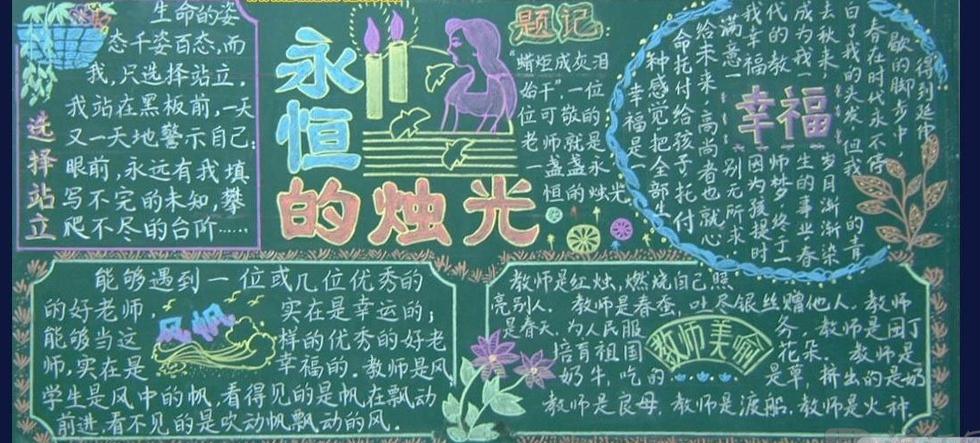 选择站立
生命的姿
态千姿百态,而
我,只选择站立,
我站在黑板前,一天
又一天地警示自己:
眼前,永远有我填
写不完的未知,攀
爬不尽的台阶……
永恒
的烛光
题记:
"蜡炬成灰泪
始干",一位
位可敬的
老师就是
一盏盏永
恒的烛光
幸福
得到延伸
歇的脚步中,
春在时代永不停
白了我的头发,但我的青
去秋来,岁月渐渐染
成为我一生的事业,春
代的教师梦终于
我幸福,因为孩提时
满意——别无所求
给未来,高尚者也就心
命托付给孩子,托付
种感觉:把全部生
幸福是一
能够遇到一位或几位优秀的
的好老师,实在是幸运的;
能够当这样的优秀的好老
师,实在是幸福的.教师是风,
学生是风中的帆,看得见的是帆在飘动
前进,看不见的是吹动帆飘动的风.
风帆
教师是红烛,燃烧自己照
亮别人. 教师是春蚕,吐尽银丝赠他人. 教师
是春天,为人民服务. 教师是园丁
培育祖国花朵. 教师是
奶牛,吃的是草,挤出的是奶
教师是良母,教师是渡船,教师是火种.
教师美喻